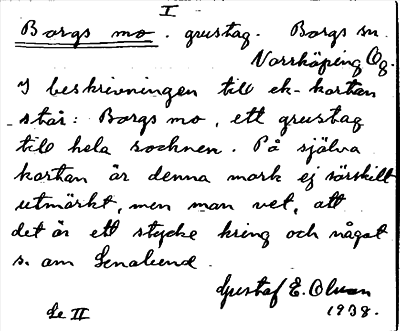 I
Borgs mo. grustag. Borgs sn.
Norrköping Ög.
I beskrivningen till ek-kartan
står: Borgs mo, ett grustag
till hela socknen. På själva
kartan är denna mark ej särskilt
utmärkt, men man vet, att
det är ett stycke kring och något
s. om Lenalund.
Gustaf E. Olsson
Se II 1938.